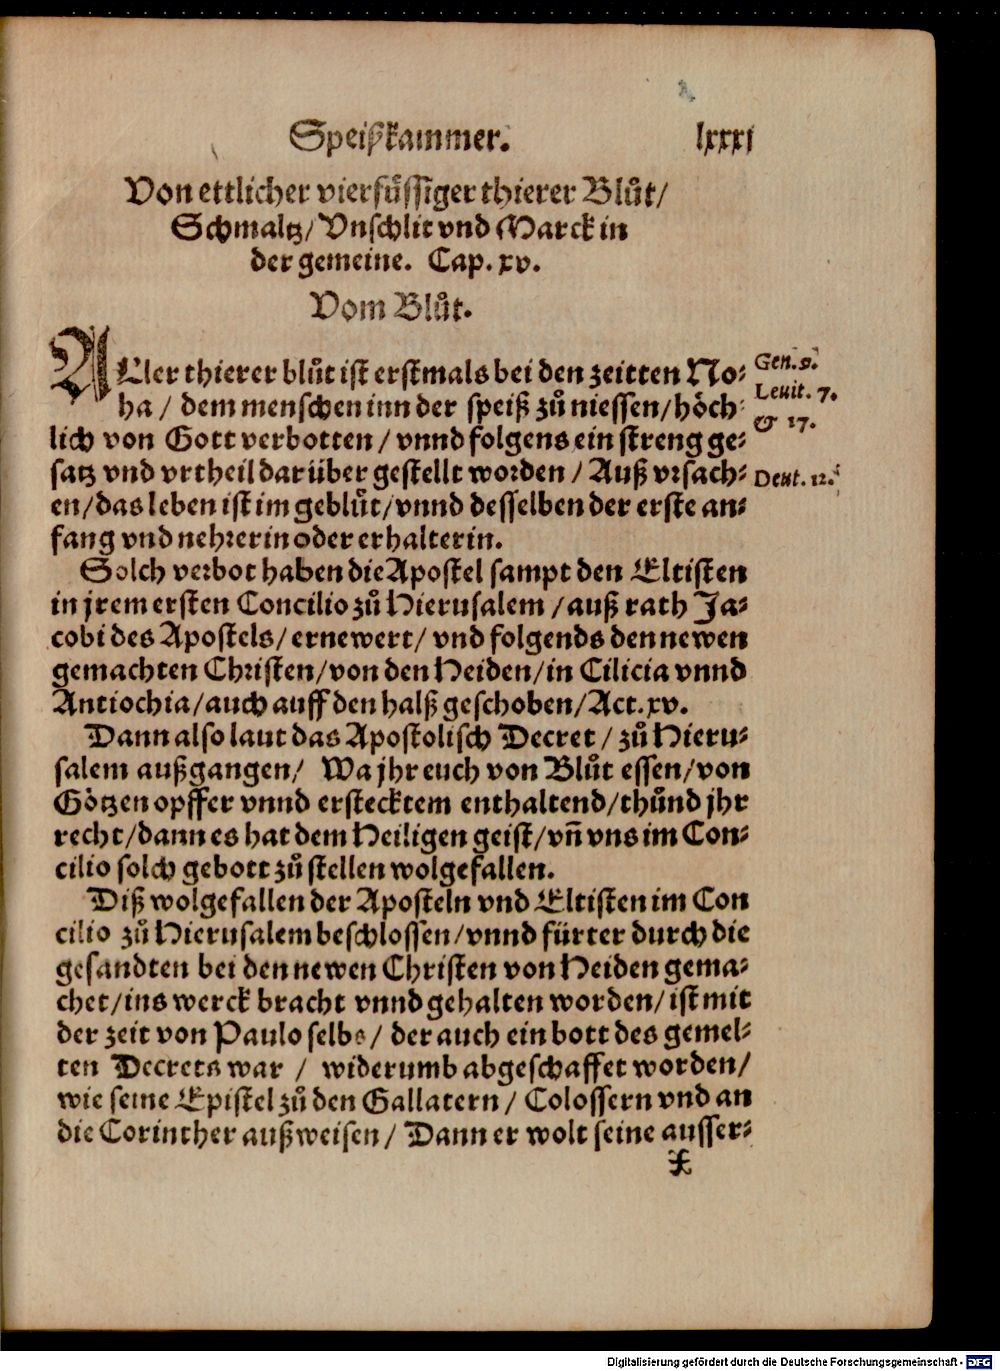 Speißkammer. lxxxj
Von ettlicher vierfüssiger thierer Blůt/
Schmaltz/ Vnschlit vnd Marck in
der gemeine. Cap. xv.
Vom Blůt.
ALler thierer blůt ist erstmals bei den zeitten No⸗
ha / dem menschen inn der speiß zů niessen/ höch⸗
lich von Gott verbotten / vnnd folgens ein streng ge⸗
satz vnd vrtheil darüber gestellt worden / Auß vrsach⸗
en/ das leben ist im geblůt/ vnnd desselben der erste an⸗
fang vnd nehrerin oder erhalterin.
Gen. 9.
Leuit. 7.
& 17.
Deut. 12.
Solch verbot haben die Apostel sampt den Eltisten
in jrem ersten Concilio zů Hierusalem / auß rath Ja⸗
cobi des Apostels/ ernewert/ vnd folgends den newen
gemachten Christen/ von den Heiden/ in Cilicia vnnd
Antiochia/ auch auff den halß geschoben/ Act. xv.
Dann also laut das Apostolisch Decret / zů Hieru⸗
salem außgangen/ Wa jhr euch von Blůt essen/ von
Götzen opffer vnnd erstecktem enthaltend/ thůnd jhr
recht/ dann es hat dem Heiligen geist/ vñ vns im Con⸗
cilio solch gebott zů stellen wolgefallen.
Diß wolgefallen der Aposteln vnd Eltisten im Con
cilio zů Hierusalem beschlossen/ vnnd fürter durch die
gesandten bei den newen Christen von Heiden gema⸗
chet/ ins werck bracht vnnd gehalten worden/ ist mit
der zeit von Paulo selbs / der auch ein bott des gemel⸗
ten Decrets war / widerumb abgeschaffet worden/
wie seine Epistel zů den Gallatern / Colossern vnd an
die Corinther außweisen / Dann er wolt seine ausser⸗
X
Digitalisierung gefördert durch die Deutsche Forschungsgemeinschaft - DFG